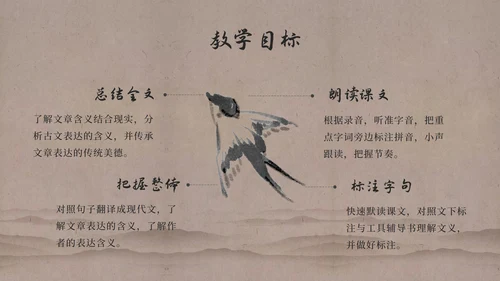 教学目标
总结全文
了解文章含义结合现实，分
析古文表达的含义，并传承
文章表达的传统美德。
朗读课文
根据录音，听准字音，把重
点字词旁边标注拼音，小声
跟读，把握节奏。
把握整体
对照句子翻译成现代文，了
解文章表达的含义，了解作
者的表达含义。
标注字句
快速默读课文，对照文下标
注与工具辅导书理解文义，
并做好标注。